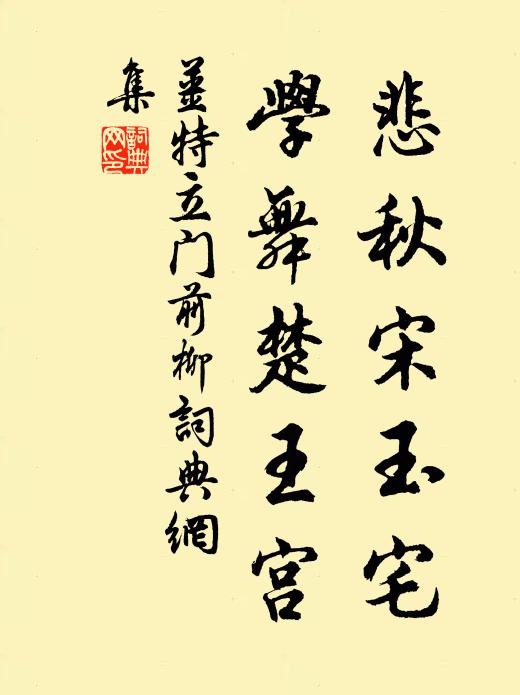 悲秋宋玉宅
學舞楚王宮
姜特立门前柳詞典網
集
詞典網印